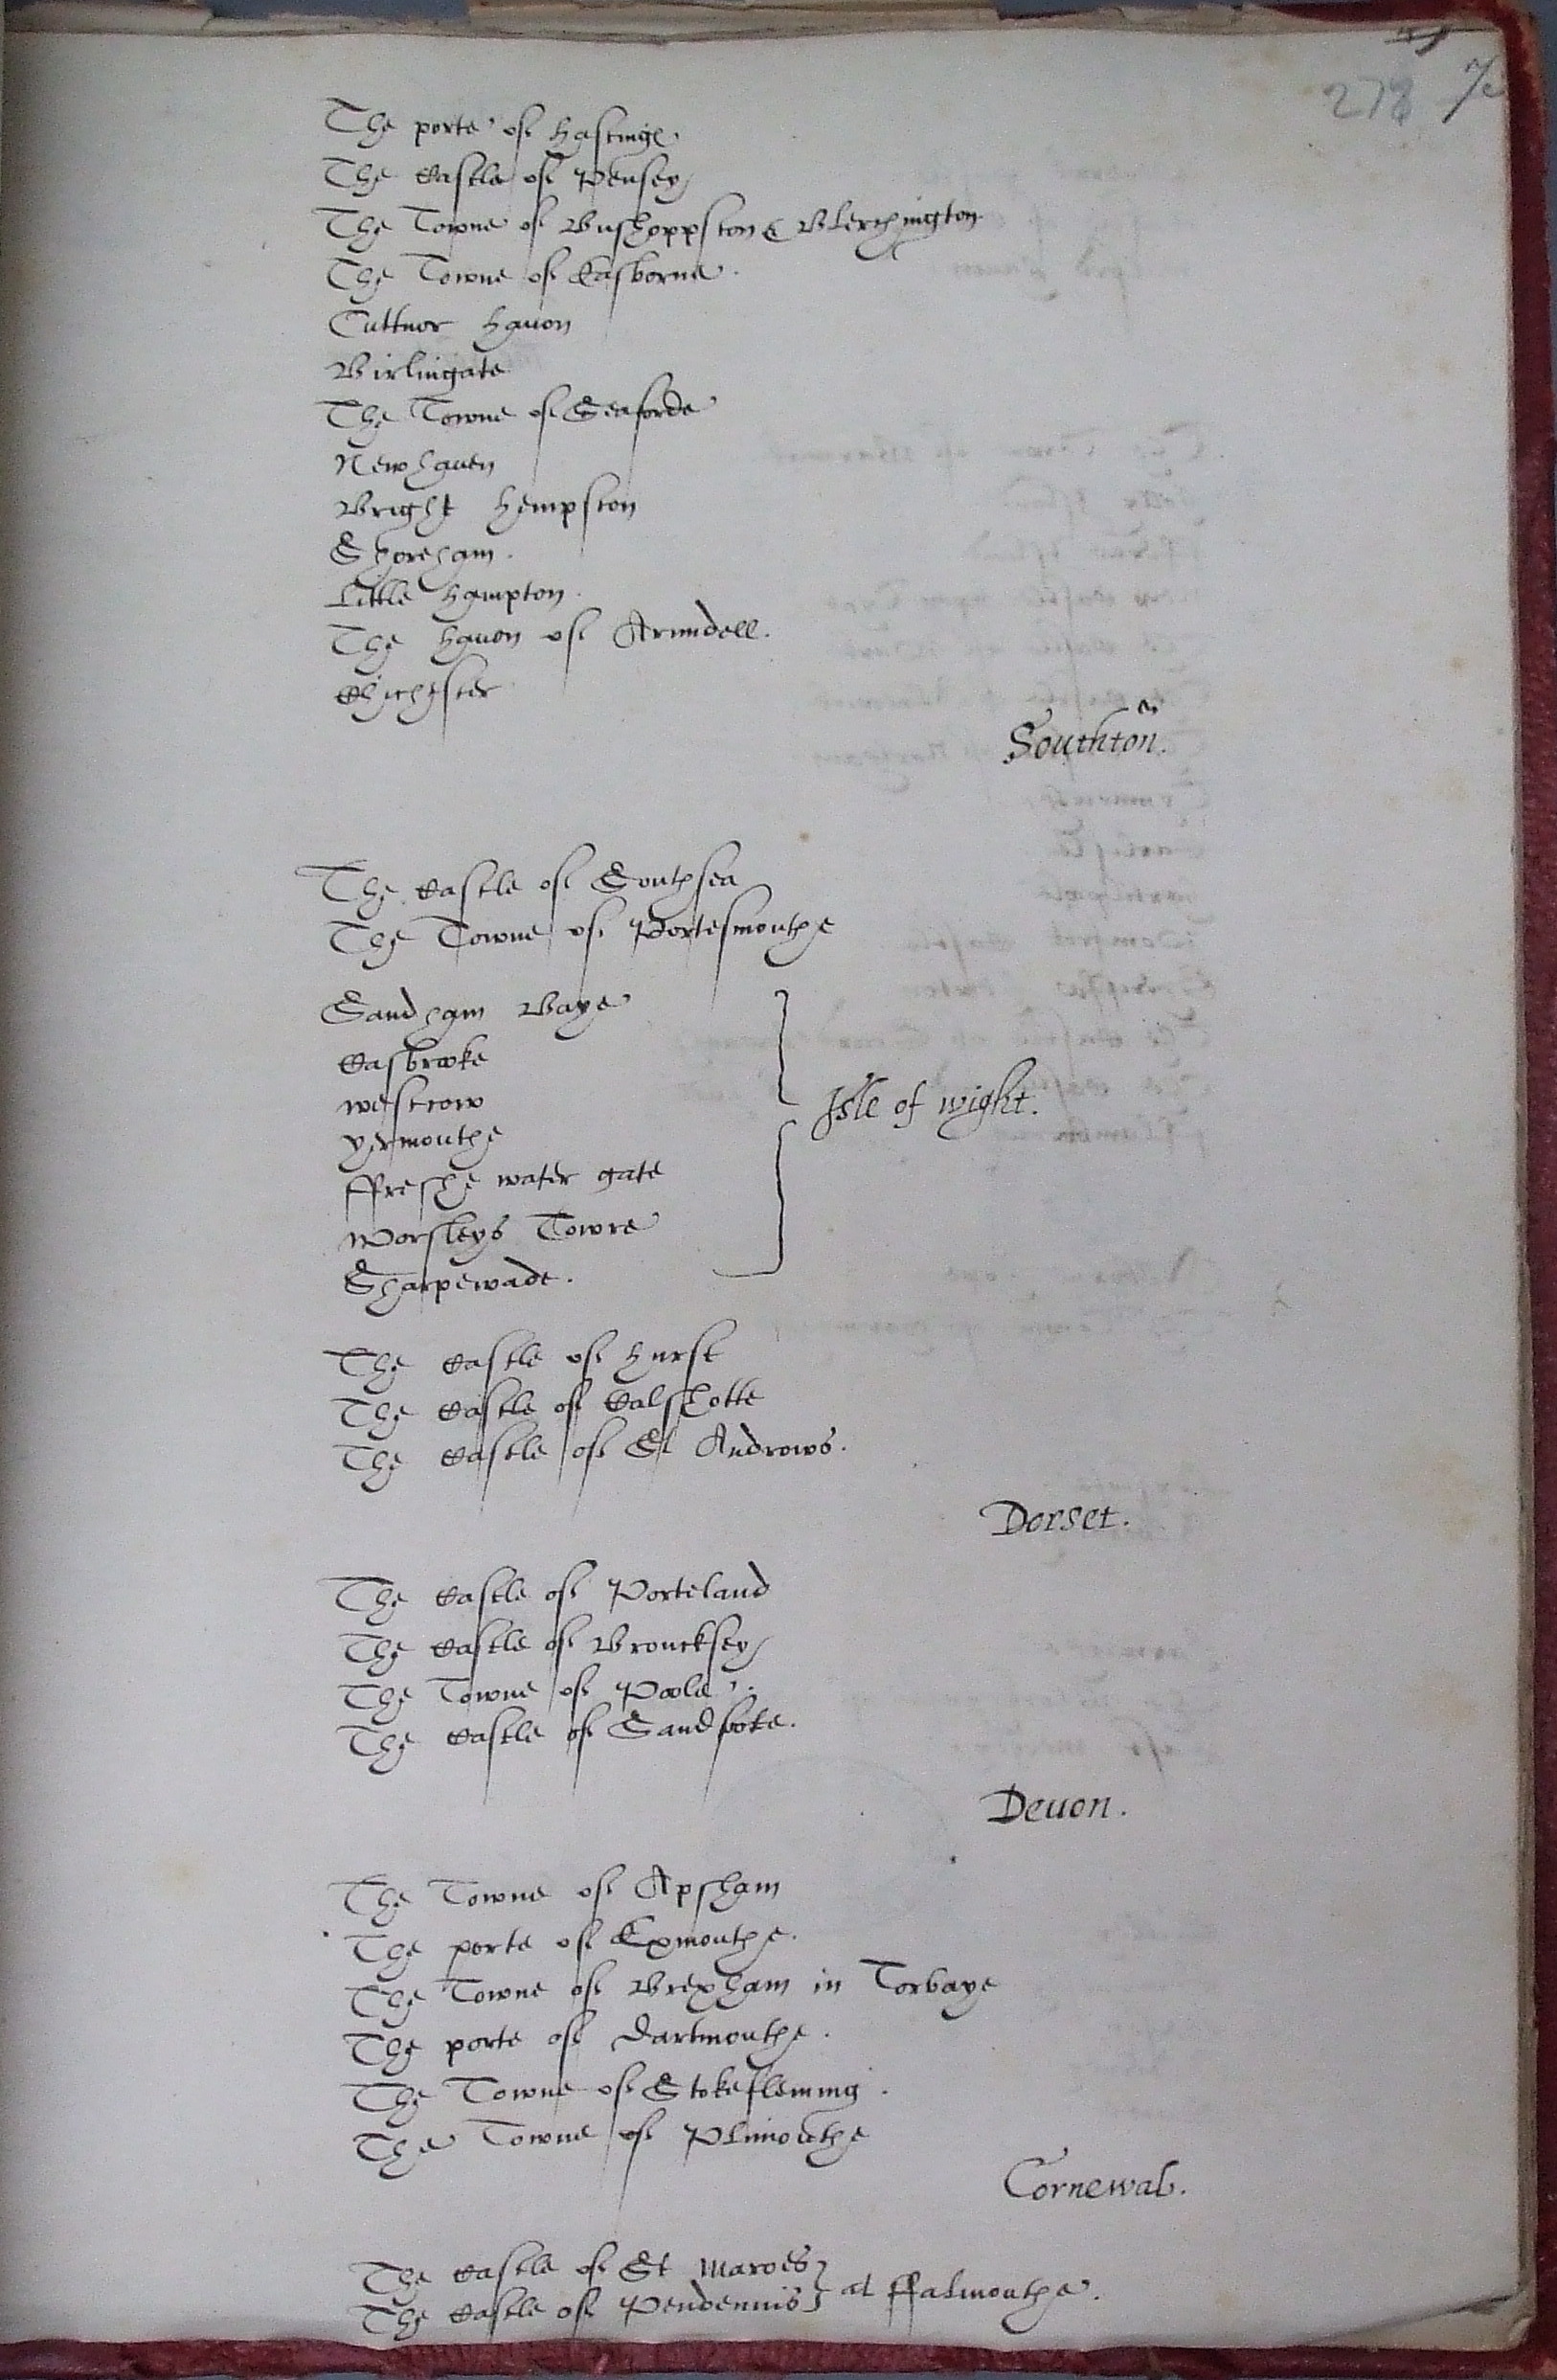 278
The porte of Hastinge
The Castle of Pensey
The Towne of Busshoppston & Blerchington
The Towne of Easborne.
Cuttner Haven
Birlingate
The Towne of Seaforde
Newhauen
Bright Hempston
Shoreham.
Little Hampton.
The Hauen of Arundell.
Chichester
Southton.
The Castle of Southsea
The Towne of Portesmouthe
Sandham Baye
Casbrooke
Westcow
Yermouthe
ffreshe water gate
Worsleys Towre
Sharpewade.
Isle of wight.
The Castle of Hurst
The Castle of Calshotte
The Castle of St Androws.
Dorset.
The Castle of Porteland
The Castle of Broncksey
The Towne of Poole.
The Castle of Sandfote.
Deuon.
The Towne of Apsham
The porte of Exmouthe.
The Towne of Brexham in Torbaye
The porte of Dartmouthe.
The Towne of Stokefleming.
The Towne of Plimouthe
Cornewal.
The Castle of St Mawes
The Castle of Pendennis } at ffalmouthe.